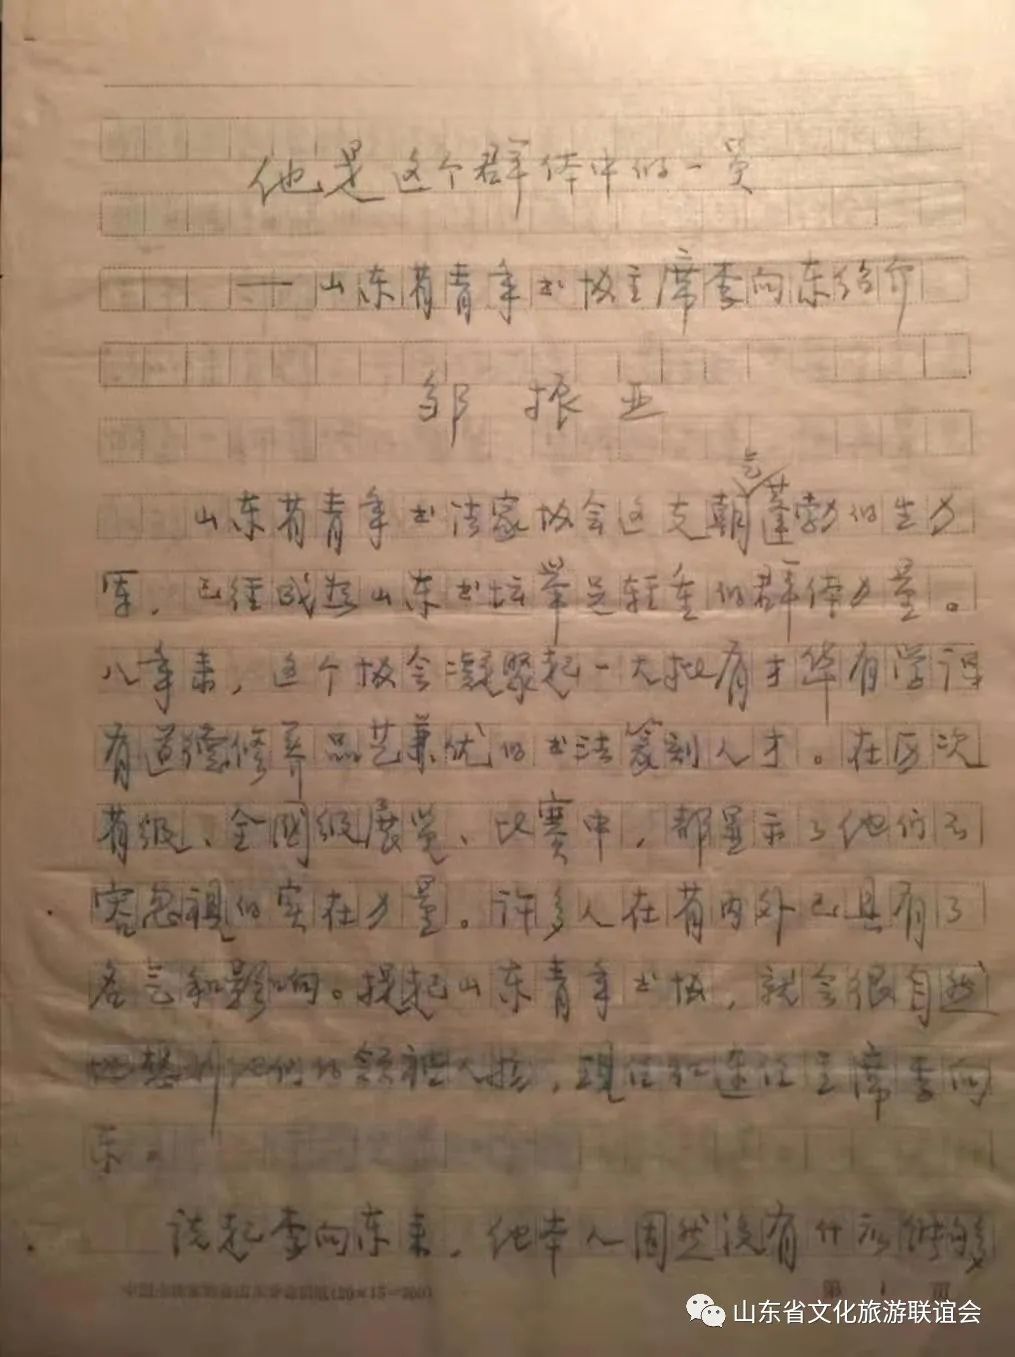 他是这个群体中的一员
——山东省青年书协主席李向东绍介
邹振亚
山东省青年书法家协会这支朝气蓬勃的生力
军，已经成为山东书坛举足轻重的群体力量。
八年来，这个协会凝聚起一大批有才华有学识
有道德修养品艺兼优的书法篆刻人才。在历次
省级、全国级展览、比赛中，都显示了他们不
容忽视的实在力量。许多人在省内外已具有了
名气和影响。提起山东青年书协，就会很自然
地想到他们的领袖人物，现任和连任主席李向
东。
说起李向东来，他本人固然没有什么
第1页
山东省文化旅游联谊会